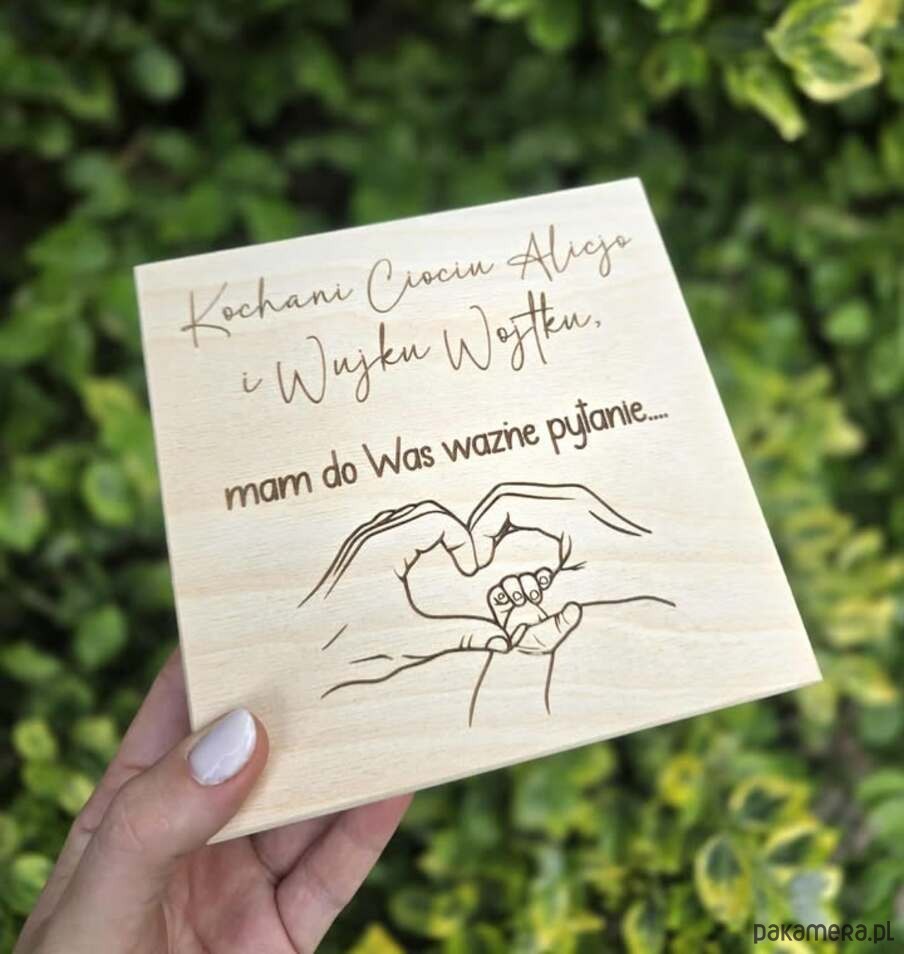 Kochani Ciociu Alicjo
i Wujku Wojtku,
mam do Was ważne pytanie....
pakamera.pl